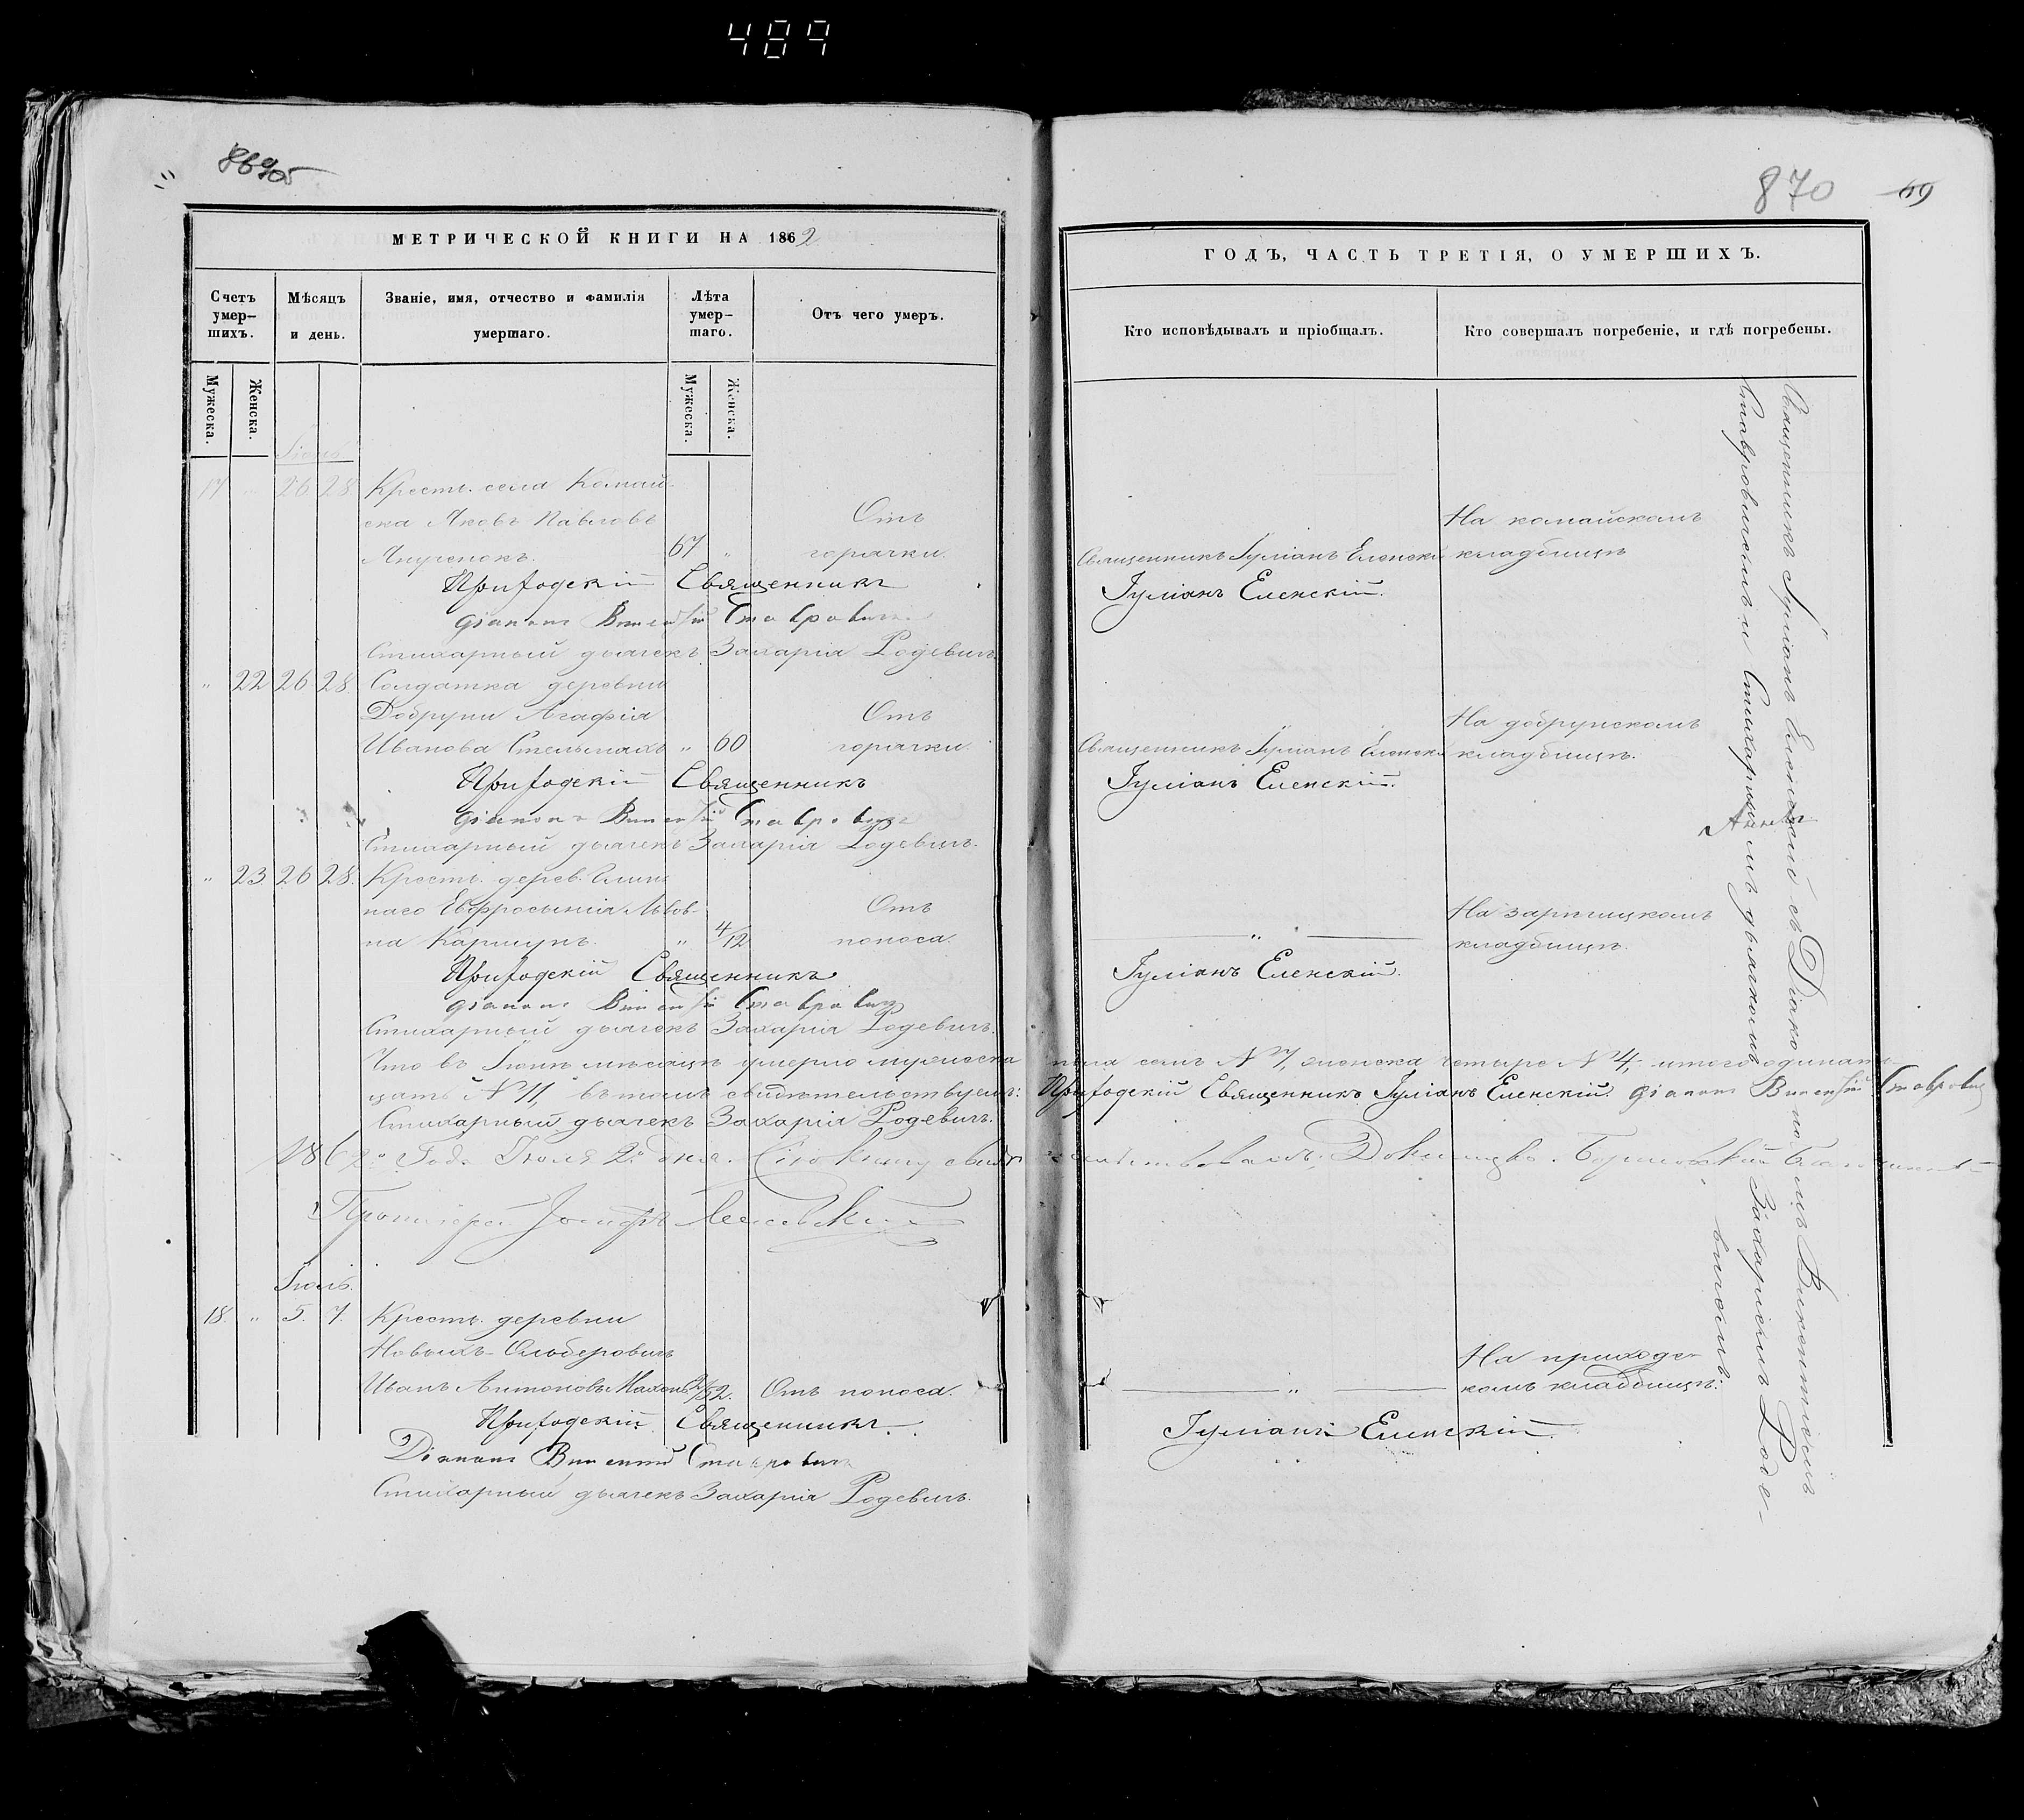 489
870
69
МЕТРИЧЕСКОЙ КНИГИ НА 1862
Счетъ умер-шихъ.
Мѣсяцъ и день.
Званіе, имя, отчество и фамилія умершаго.
Лѣта умер-шаго.
Отъ чего умеръ.
Мужеска.
Женска.
Мужеска.
Женска.
Іюнь
17 " 26 28 Крестъ. села Комай-
ска Яковъ Павловъ Отъ
67 " горячки.
Приходскій Священникъ
діаконъ Викентій Ставровичъ
Стихарный дьячекъ Захарія Родевичъ.
" 22 26 28. Солдатка деревни
Добруни Агафія Отъ
Иванова Стельмахъ " 60 горячки.
Приходскій Священникъ
діаконъ Викентій Ставровичъ
Стихарный дьячекъ Захарія Родевичъ.
" 23. 26 28. Крестъ. дерев.
Евфросынія Львов- Отъ
на " 4/12 поноса.
Приходскій Священникъ
діаконъ Викентій Ставровичъ
Стихарный дьячекъ Захарія Родевичъ.
Что въ Іюнѣ мѣсяцѣ умерло мужеска
цать N 11, въ томъ свидѣтельствуемъ:
Стихарный дьячекъ Захарія Родевичъ.
1862го Года Іюля 2го дня. Сію Книгу свидѣ
Протоіерей Іосифъ
Іюль.
18. " 5. 7. Крестъ. деревни
Новыхъ-
Иванъ Антоновъ Отъ поноса.
Приходскій Священникъ.
Діаконъ Викентій Ставровичъ
Стихарный дьячекъ Захарія Родевичъ.
ГОДЪ, ЧАСТЬ ТРЕТІЯ, О УМЕРШИХЪ.
Кто исповѣдывалъ и пріобщалъ.
Кто совершалъ погребеніе, и гдѣ погребены.
На комайскомъ
Священникъ Іуліанъ Еленскій кладбищѣ
Іуліанъ Еленскій.
На добрунскомъ
Священникъ Іуліанъ Еленскій кладбищѣ.
Іуліанъ Еленскій.
На
" кладбищѣ.
Іуліанъ Еленскій.
пола семь N 7, женска четыре N 4, итого одинат-
Приходскій Священникъ Іуліанъ Еленскій. діаконъ Викентій Ставровичъ
тельствовалъ, Докшицко-Борисовскій Благочинный
На приход-
" комъ кладбищѣ.
Іуліанъ Еленскій.
Священникъ Іуліанъ Еленскій съ Діакономъ Викентіемъ
Ставровичемъ и Стихарнымъ дьячкомъ Захаріемъ Роде-
вичемъ